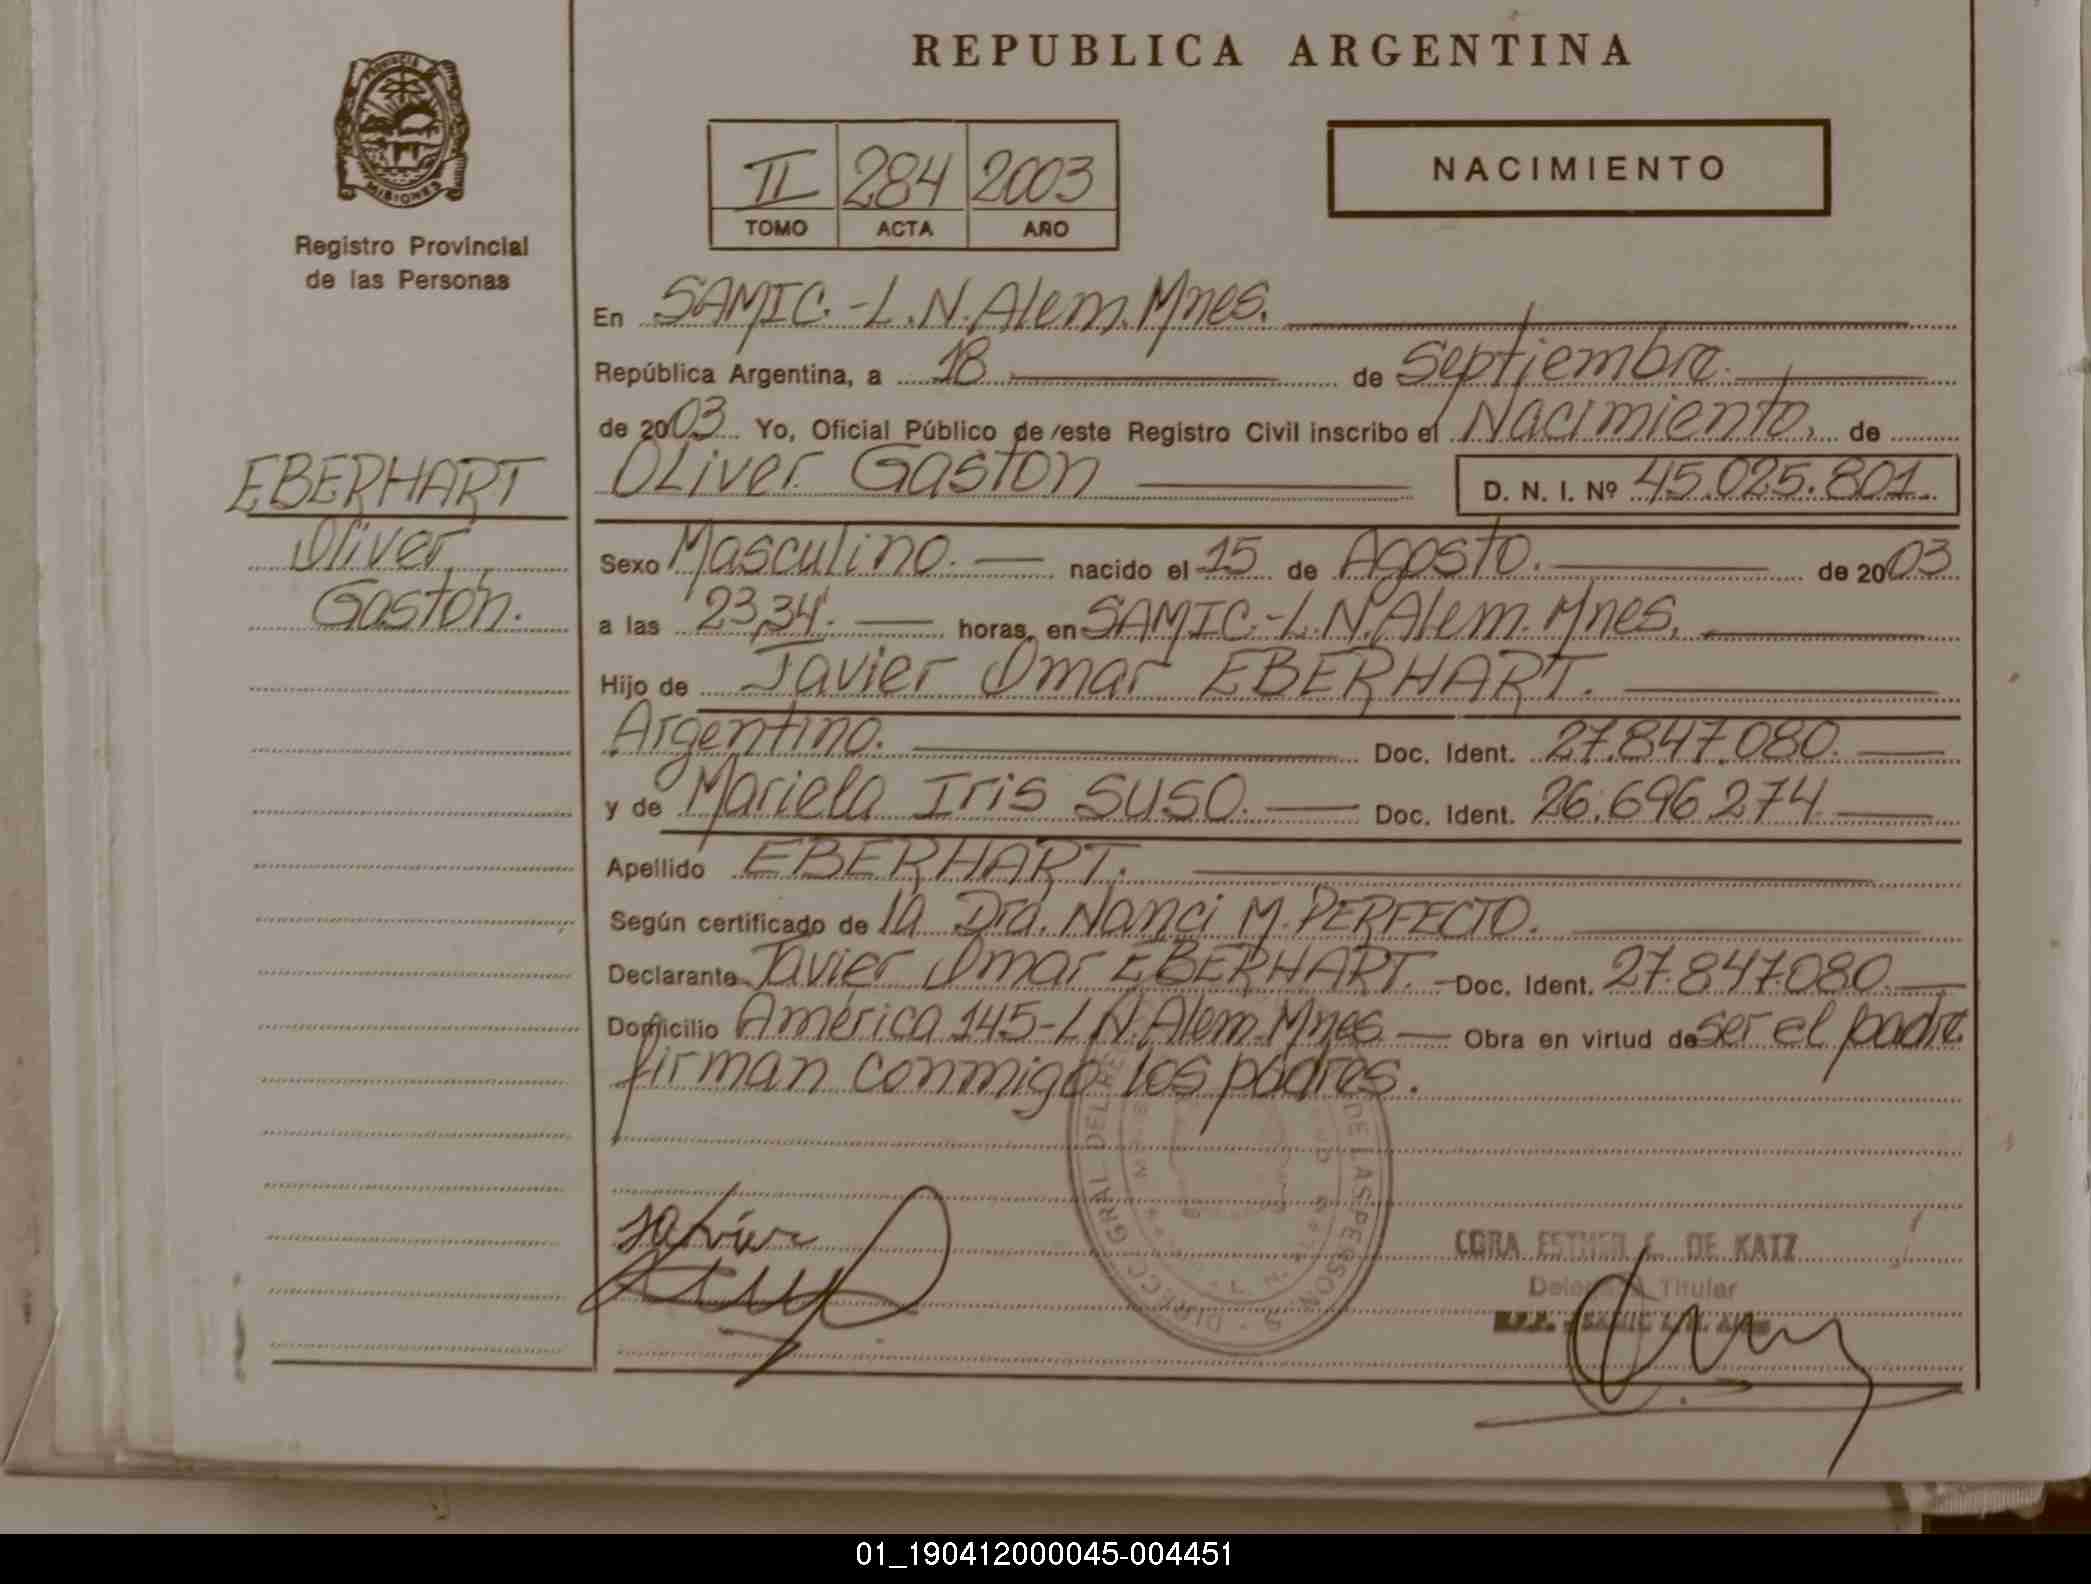 REPUBLICA ARGENTINA
PROVINCIA DE
MISIONES
Registro Provincial
de las Personas
II 284 2003
TOMO ACTA AÑO
NACIMIENTO
En SAMIC.-L.N.Alem.Mnes.
República Argentina, a 18 de Septiembre.
de 2003 Yo, Oficial Público de este Registro Civil inscribo el Nacimiento, de
OLiver Gaston D. N. I. Nº 45.025.801.
EBERHART
Oliver
Gastón.
Sexo Masculino. nacido el 15 de Agosto. de 2003
a las 23,34. horas, en SAMIC.-L.N.Alem.Mnes.
Hijo de Javier Omar EBERHART.
Argentino. Doc. Ident. 27.847.080.
y de Mariela Iris SUSO. Doc. Ident. 26.696.274
Apellido EBERHART.
Según certificado de la Dra. Nanci M. PERFECTO.
Declarante Javier Omar EBERHART. Doc. Ident. 27.847.080
Domicilio América 145-L.N.Alem.Mnes Obra en virtud de ser el padre
firman conmigo los padres.
DIRECC. GRAL. DEL RE DE LAS PERSON S
Javier
CORA ESTHER DE KATZ
Titular
01_190412000045-004451